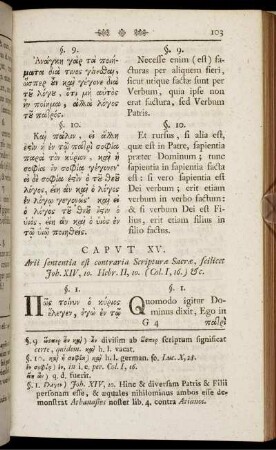 103
§. 9.
Ἀνάγκη γὰρ τὰ ποιή-
ματα διά τινος γενέσθαι,
ὥσπερ καὶ γέγονε διὰ
τοῦ λόγου, ὅτι μὴ αὐτὸς
ἦν ποίημα, ἀλλὰ λόγος
τοῦ πατρός.
§. 10.
Καὶ πάλιν, εἰ ἄλλη
ἐστὶν ἡ ἐν τῷ πατρὶ σοφία
παρὰ τὸν κύριον, καὶ ἡ
σοφία ἐν σοφίᾳ γέγονεν·
εἰ δὲ σοφία ἐστὶν ὁ τοῦ θεοῦ
λόγος, εἴη ἂν καὶ ὁ λόγος
ἐν λόγῳ γεγονώς· καὶ εἰ
ὁ λόγος τοῦ θεοῦ ἐστὶν ὁ
υἱὸς, εἴη ἂν καὶ ὁ υἱὸς ἐν
τῷ υἱῷ ποιηθείς.
§. 9.
Necesse enim (est) fa-
cturas per aliquem fieri,
sicut utique factæ sunt per
Verbum, quia ipse non
erat factura, sed Verbum
Patris.
§. 10.
Et rursus, si alia est,
quæ est in Patre, sapientia
præter Dominum; tunc
sapientia in sapientia facta
est: si vero sapientia est
Dei verbum; erit etiam
verbum in verbo factum:
& si verbum Dei est Fi-
lius, erit etiam filius in
filio factus.
CAPVT XV.
Arii sententia est contraria Scripturæ Sacræ, scilicet
Joh. XIV, 10. Hebr. II, 10. (Col. I, 16.) &c.
§. 1.
Πῶς τοίνυν ὁ κύριος
ἔλεγεν, ἐγὼ ἐν τῷ
§. 1.
Quomodo igitur Do-
minus dixit, Ego in
G 4 πατρὶ
§. 9 ὥσπερ καὶ) divisim ab ὥσπερ scriptum significat
certe, quidem. καὶ h. l. vacat.
§. 10. καὶ ἡ σοφία) καὶ h. l. german. so. Luc. X, 28.
ἐν σοφίᾳ) ἐν, in i. e. per. Col. I, 16.
q. d. fuerit.
§. 1. ἔλεγεν) Joh. XIV, 10. Hinc & diversam Patris & Filii
personam esse, & equales nihilominus ambos esse de-
monstrat Athanasius noster lib. 4. contra Arianos.